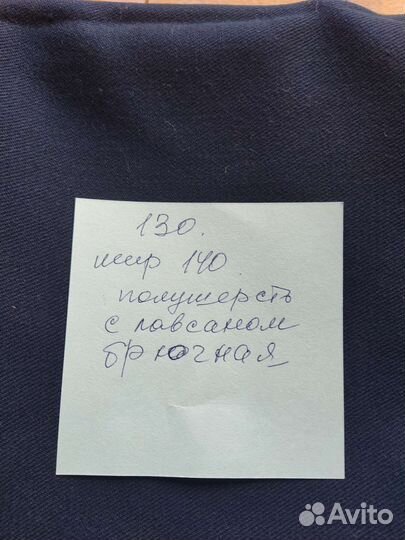 130.
шир 140.
полушерсть
с лавсаном
брючная
Avito